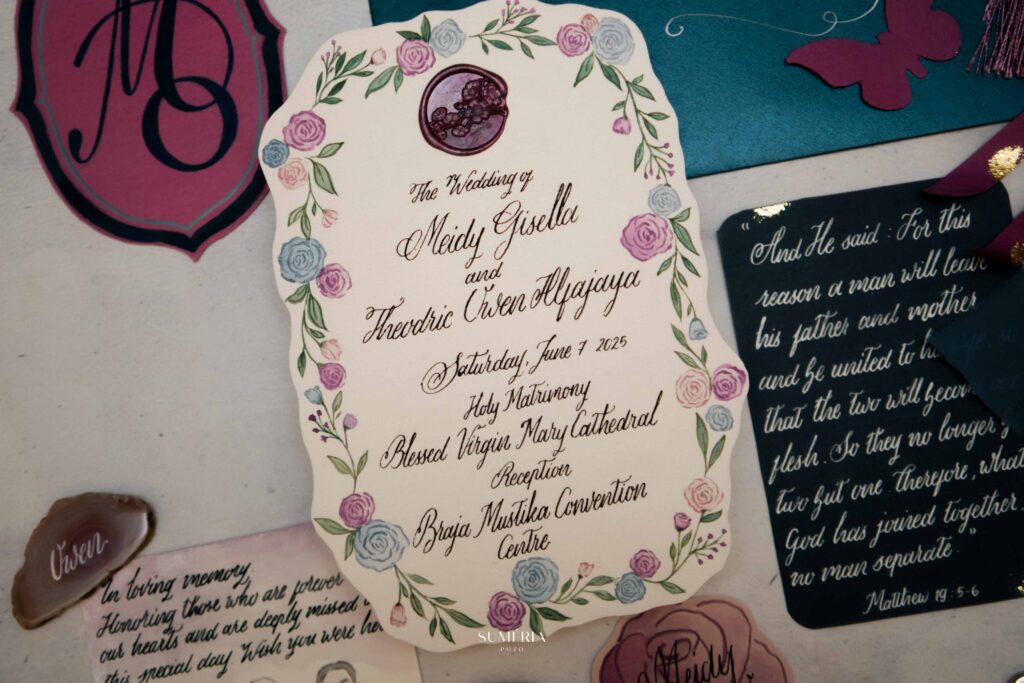 MO
The Wedding of
Meidy Gisella
and
Theodric Uwen Alfajaya
Saturday, June 7 2025
Holy Matrimony
Blessed Virgin Mary Cathedral
Reception
Braja Mustika Convention
Centre
"And He said : For this
reason a man will leave
his father and mother
and be united to
that the two will
flesh. So they no longer
two but one Therefore, what
God has joined together,
no man separate."
Matthew 19 : 5-6
Uwen
In loving memory
Honoring those who are forever
our hearts and are deeply missed
this special day. Wish you were
Meidy
SUMERIA
FOTO